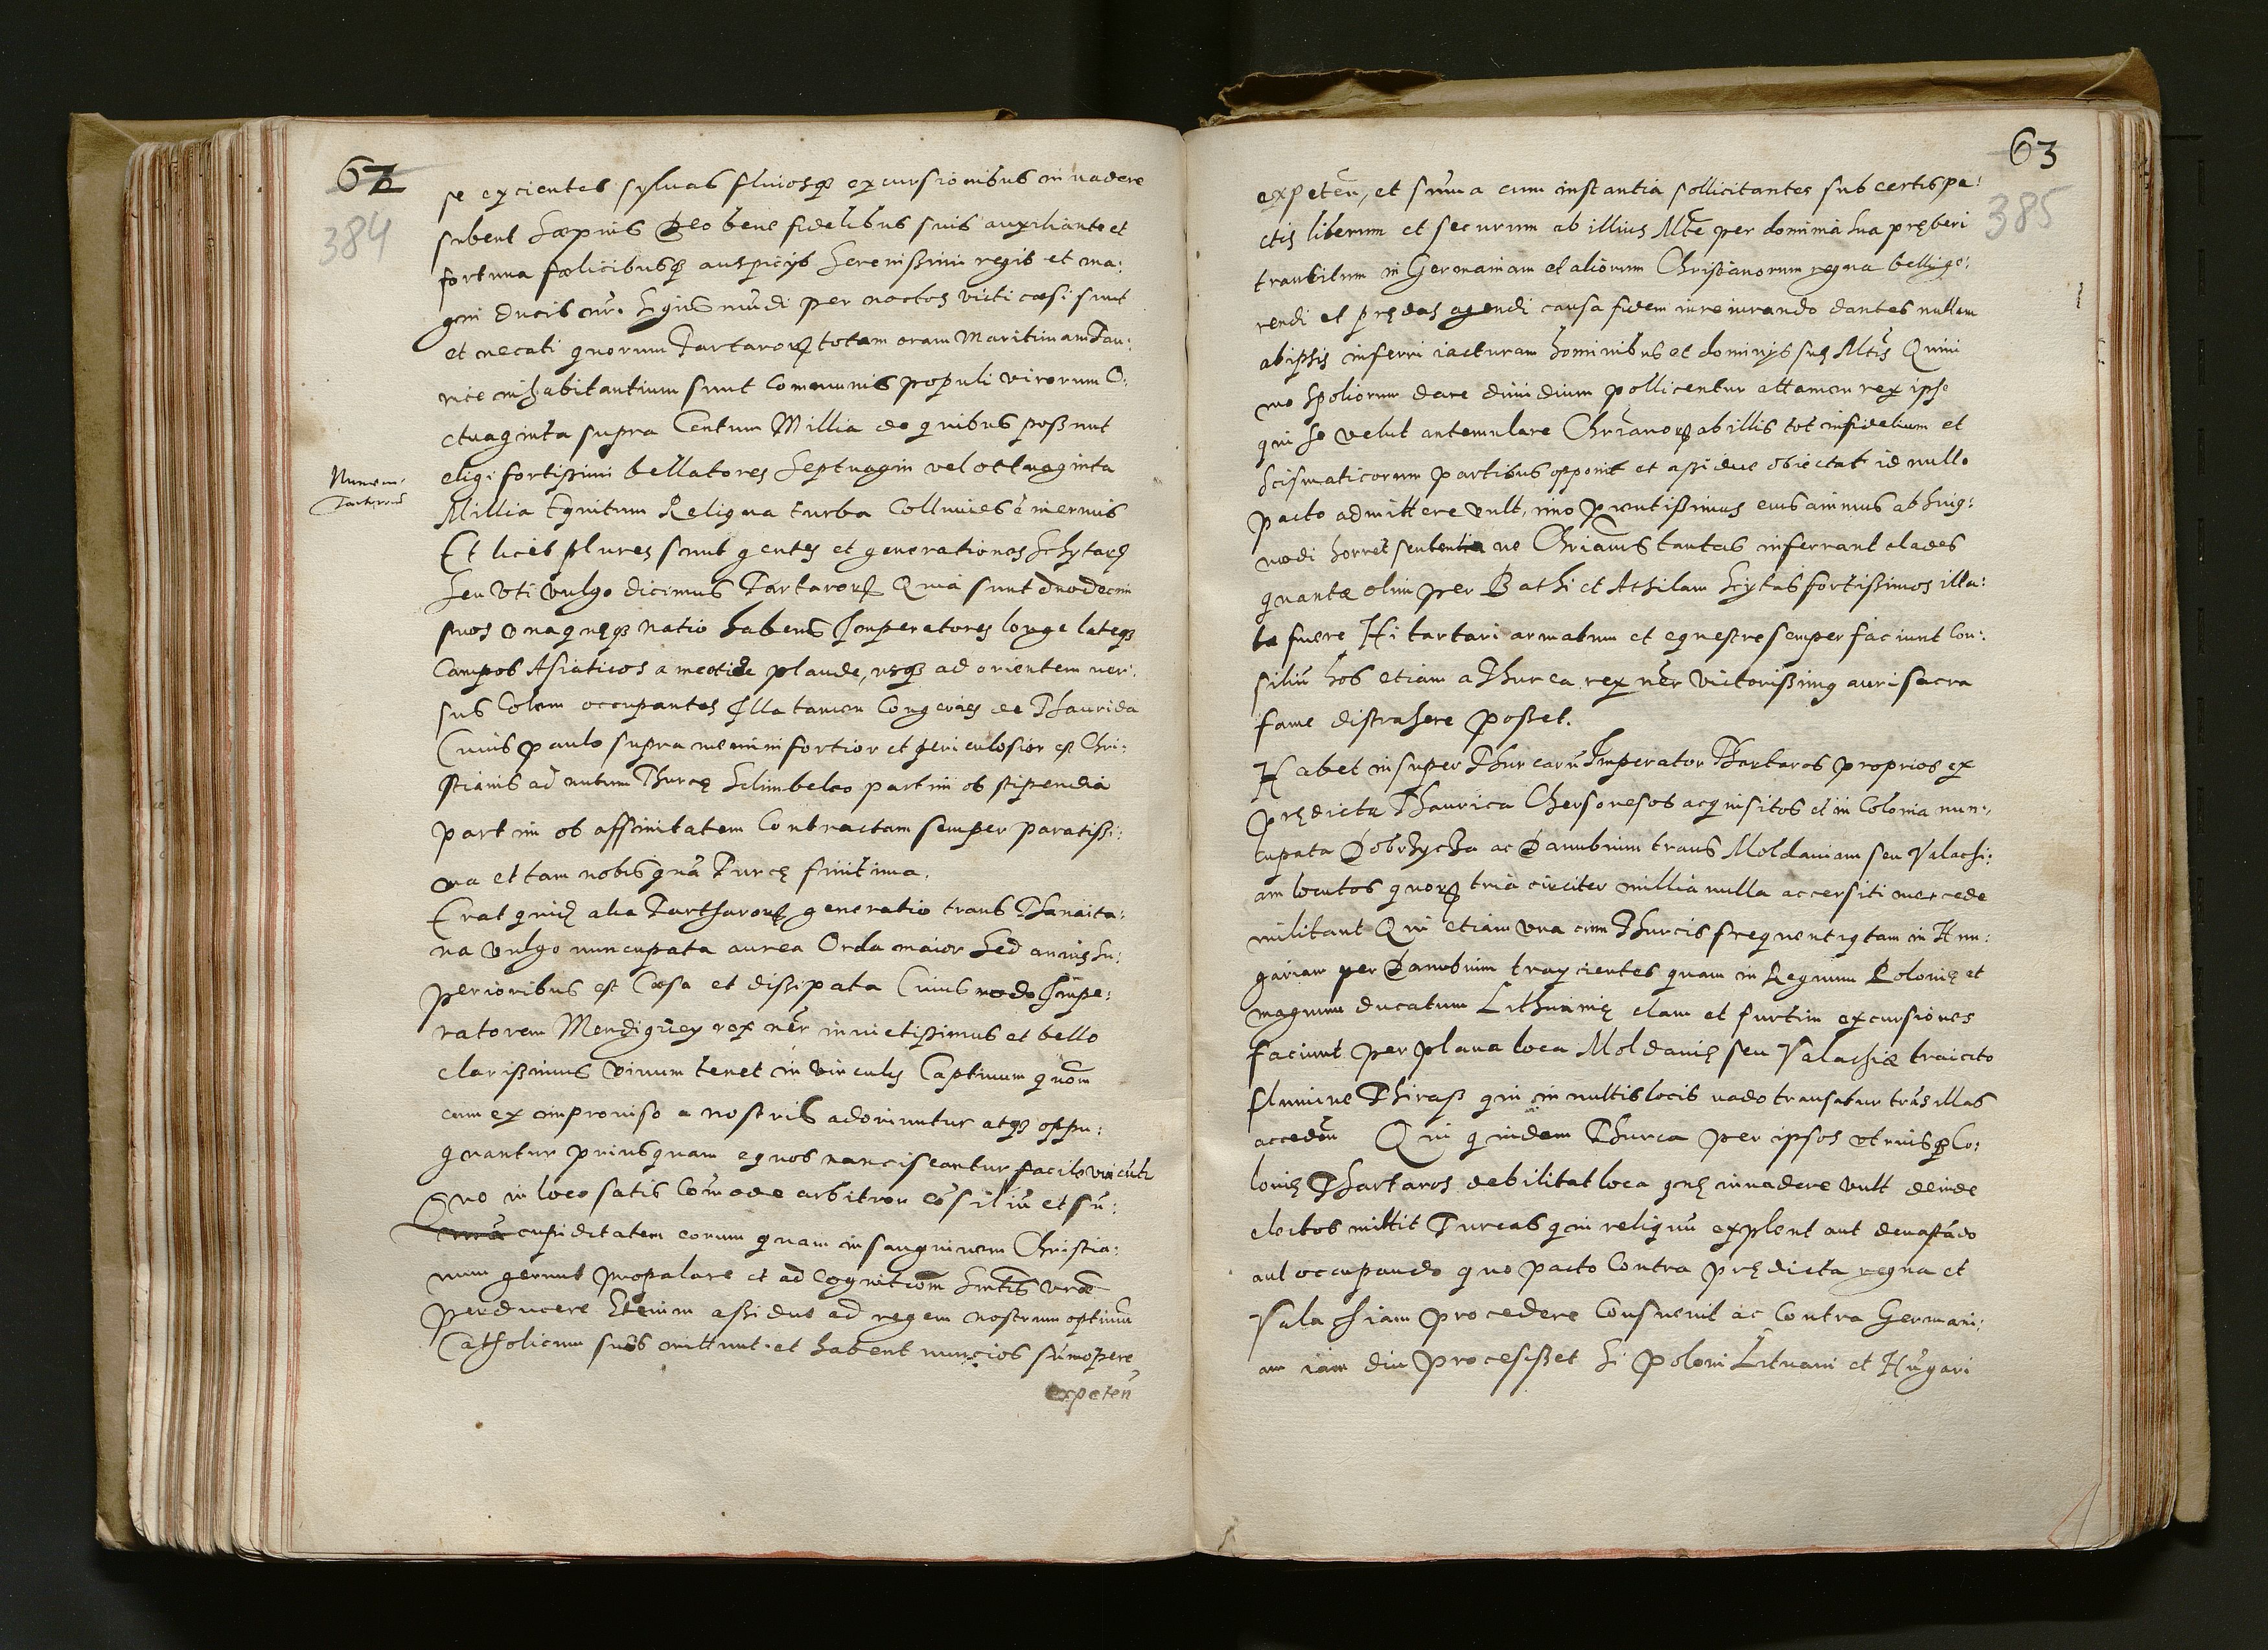 62
384
se eycientes syluas fluiosq3 excursionibus inuadere
subent Saepius Deo bene fidelibus suis auxiliante et
fortuna foelicibusq3 auspicijs Serenissimi regis et ma:
gni ducis nr. Sigismundi per nactos victi caesi sunt
et necati quorum Tartaror totam oram Maritimam Tau:
rice inhabitantium sunt Communis populi virorum O:
ctuaginta supra Centum Millia de quibus possunt
eligi fortissimi bellatores Septuagin vel octuaginta
Numerus
Tartarorũ
Millia Equitum Reliqua turba Colluuies é inermis
Et licet plures sunt gentes et generationes Schytarũ
Seu Vti vulgo dicimus Tartaror Quia sunt duodecim
suos vnaqueq3 natio habens Imperatores longe lateq3
Campos Asiaticos a meotide plaude, usq3 ad orientem ver:
sus Colem occupantes Illa tamen Congeries de Thaurida
Cuius paulo supra memini fortior et periculosior est Chri:
stianis ad nutum Thurcę Selimbeleo partim ob stipendia
partim ob affinitatem Contractam semper paratissi:
ma et tam nobis quã Turcę finitima.
Erat quid alia Tartharor generatio trans Thanaita:
na vulgo nuncupata aurea Orda maior Sed annis su:
perioribus est Caesa et dissipata Cuius modo Impe:
ratorem Mendigirey rex nẽr inuictissimus et bello
clarissimus viuum tenet in vinculis Captiuum quom
cum ex improuiso a nostris adoriuntur atq3 oppu:
gnantur priusquam equos nanciscantur facile vincũtr
Quo in loco satis Comode arbitror cõsiliũ et sũ:
cupiditatem eorum quam in sanguinem Christia:
num gerunt propalare et ad Cognitiom Smtis vrae
perducere Etenim assidue ad regem nostrum optimũ
Catholicum suos mittunt et habent nuncios sũmopere
expeten
63
385
expeten, et suma cum instantia sollicitantes sub certis pa:
ctis liberum et securum ab illius Mte per dominia sua pręberi
transitum in Germaniam et aliorum Christianorum regna bellige:
rendi et prędas agendi causa fidem iureiurando dantes nullam
ab ipsis inferri iacturam hominibus et dominijs suę Mtis Quini
mo Spoliorum dare dimidium pollicentur attamen rex ipse
qui se velut antemulare Chrianor ab illis tot infidelium et
Scismaticorum partibus opponit et assidue obiectat id nullo
pacto admittere vult, imo prontissimus eius animus ab huig:
modi horret sententia ne Chrianis tantas inferrant clades
quantae olim per Bathi et Athilam Scytas fortissimos illa:
ta fuere Hi tartari armatum et equestre semper faciunt Con:
siliũ hos etiam a Thurca rex nẽr victorissimg auri sacra
fame distrahere posset.
Habet insuper Thurcarũ Imperator Thartaros proprios ex
prędicta Thaurica Chersonesos acquisitos et in Colonia nun:
cupata Dobrzycza ac Danubium trans Moldauiam seu Valachi:
am locatos quor tria circiter millia nulla accersiti mercede
militant Qui etiam vna cum Thurcis frequentig tam in Hun:
gariam per Danubium trajcientes quam in Regnum Polonię et
magnum ducatum Lithuanię clam et furtim excursiones
faciunt per plana loca Moldauię seu Valachiae traiecto
flumine Thirass qui in multis locis uado transatur trãs illas
acceden Qui quidem Thurca per ipsos vtriusq3 Co:
lonię Thartaros debilitat loca quę inuadere vult deinde
electos mittit Turcas qui reliquũ explent aut deuastãdo
aut occupando quo pacto Contra prędicta regna et
Valachiam procedere Consueuit ac Contra Germani:
am iam diu processisset Si poloni Lituani et Hũgari